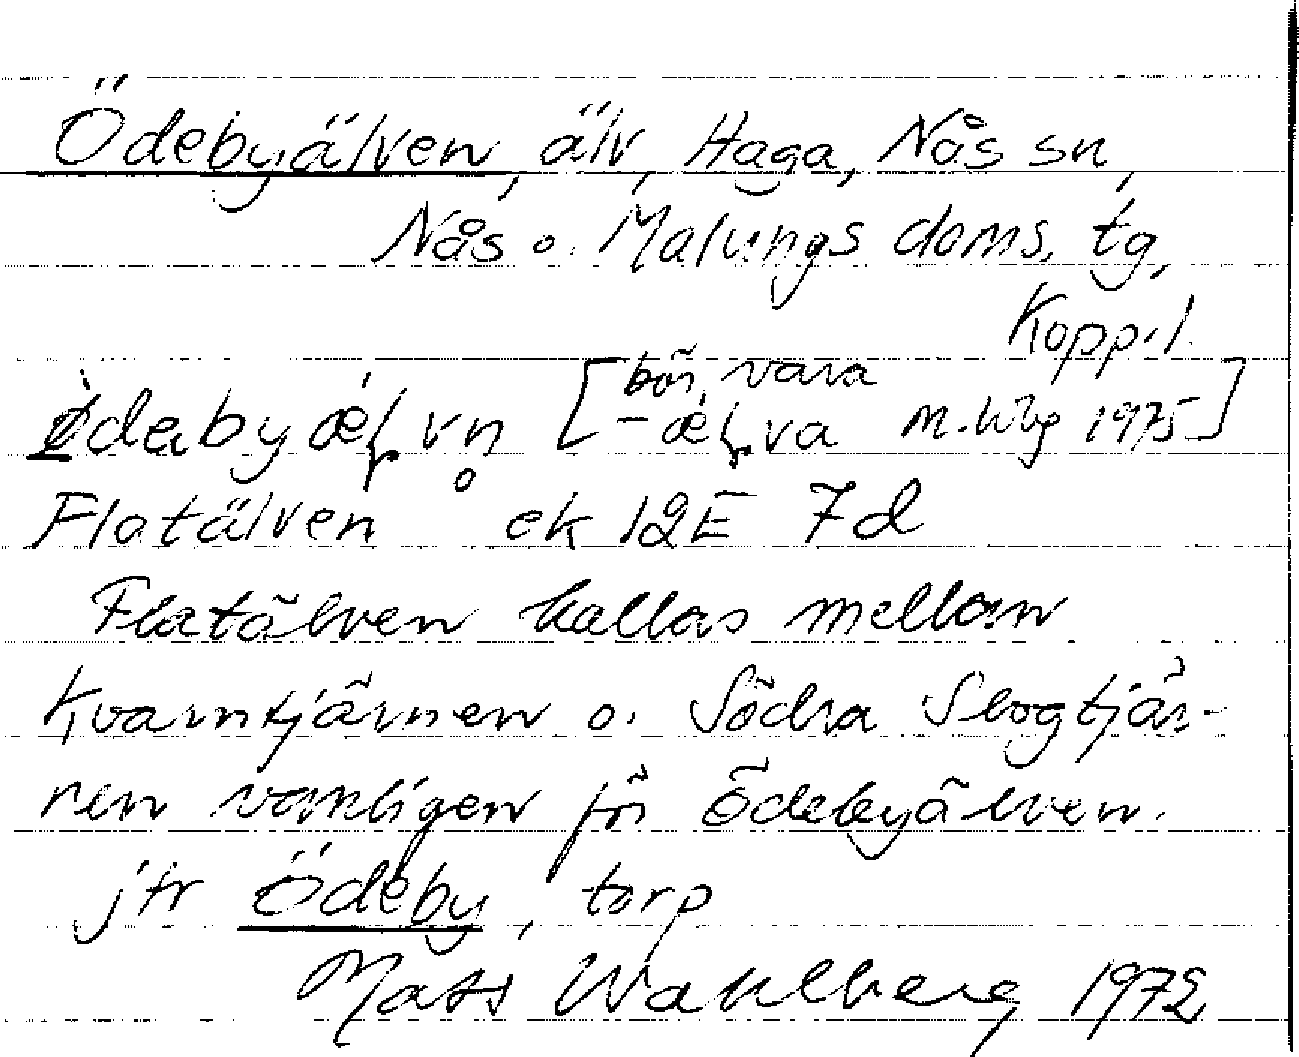 Ödebyälven, älv, Haga, Nås sn,
Nås o. Malungs doms. tg,
Kopp. l.
ø̀dabyæ̀ļvn̥ [bör vara -æ̀ļva M. Wbg 1975]
Flatälven ek 12E 7d
Flatälven kallas mellan
Kvarntjärnen o. Södra Skogtjär-
nen vanligen för Ödebyälven.
jfr Ödeby, torp
Mats Wahlberg 1972